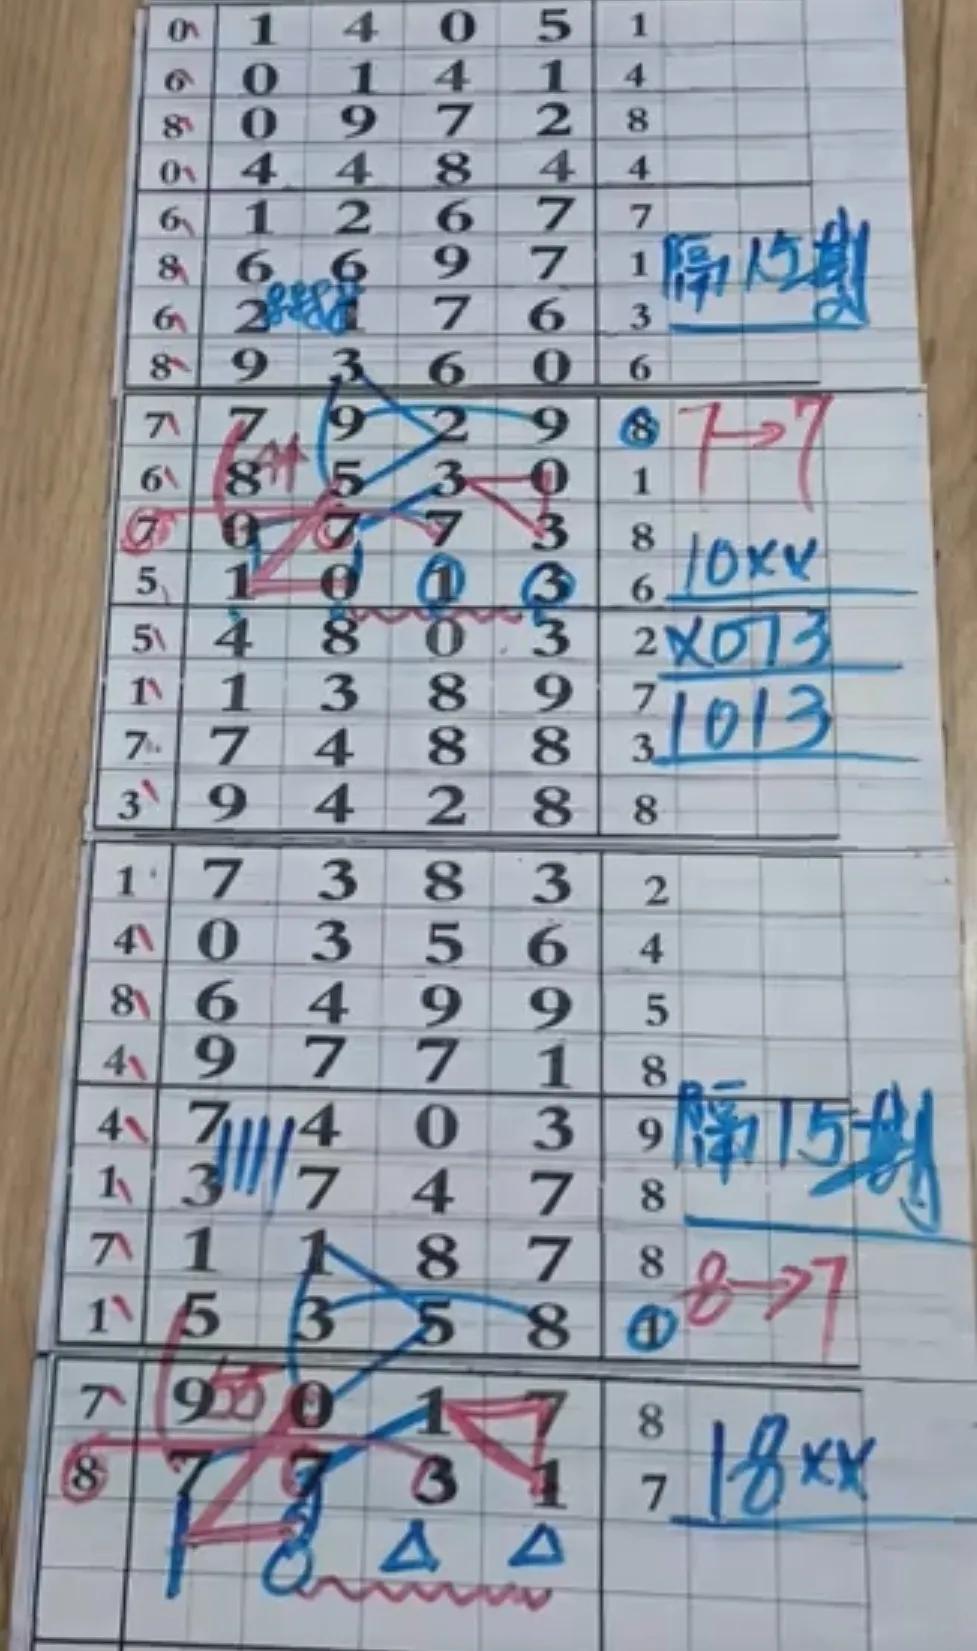 0 1 4 0 5 1
6 0 1 4 1 4
8 0 9 7 2 8
0 4 4 8 4 4
6 1 2 6 7 7
8 6 6 9 7 1 隔15期
6 2 1 7 6 3
8 9 3 6 0 6
7 7 9 2 9 8 7→7
6 8 5 3 0 1
7 0 7 7 3 8 10xx
5 1 0 1 3 6
5 4 8 0 3 2 x073
1 1 3 8 9 7 1013
7 7 4 8 8 3
3 9 4 2 8 8
1 7 3 8 3 2
4 0 3 5 6 4
8 6 4 9 9 5
4 9 7 7 1 8
4 7 4 0 3 9 隔15期
1 3 7 4 7 8
7 1 1 8 7 8 8→7
1 5 3 5 8 1
7 9 55 0 1 7 8
8 7 7 3 1 7 18xx
1 8 △ △